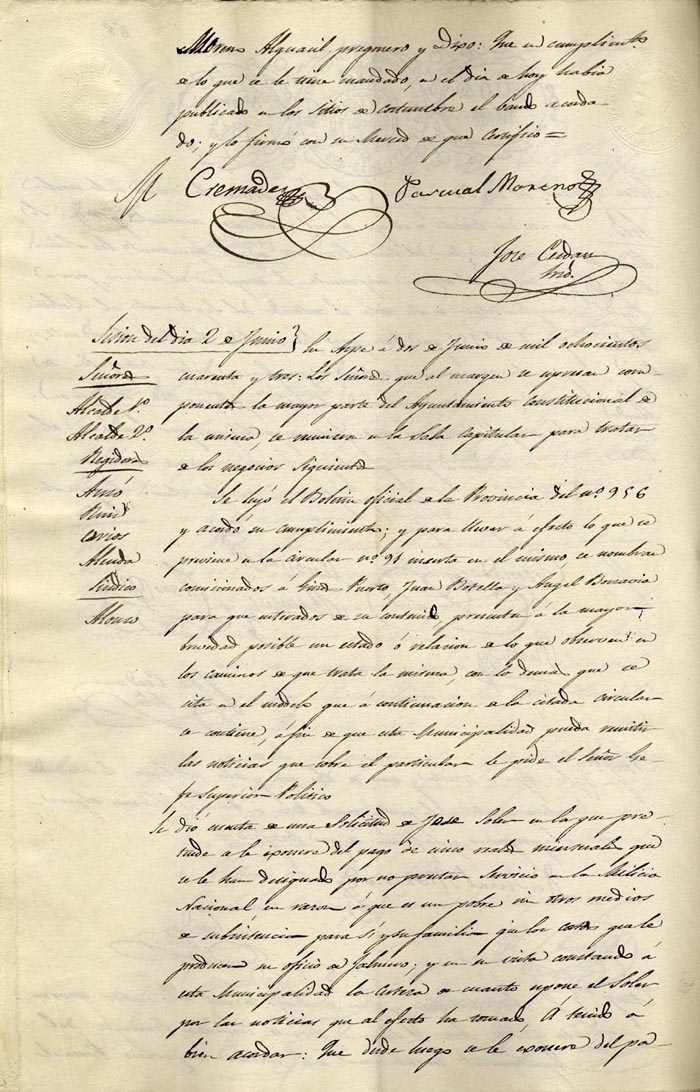 Moreno Alguacil pregonero y Dijo: Que en cumplimto.
de lo que se le tiene mandado, en el dia de hoy habia
publicado en los sitios de costumbre el bando acorda-
do; y lo firmó con su Merced de que Certifico=
Cremades
Pascual Moreno
Jose Cerdan
Srio.
Sesion del dia 2 de Junio
En Aspe á dos de Junio de mil ochocientos
cuarenta y tres: Los Señores que al margen se espresan com-
ponentes la mayor parte del Ayuntamiento constitucional de
la misma, se reunieron en la Sala Capitular para tratar
de los negocios siguientes
Señores
Alcalde 1º.
Alcalde 2º.
Regidores
Almoda
Sindico
Alonso
Se leyó el Boletin oficial de la Provincia del nº 956
y acordó su cumplimiento; y para llevar á efecto lo que se
previene en la circular nº 91 inserta en el mismo, se nombran
comicionados á Ginés Puerto, Juan Botella y Angel Bonavia
para que enterados de su contenido presenten á la mayor
brevedad posible un estado ó relacion de lo que observen en
los caminos de que trata la misma, con lo demas que se
cita en el modelo que á continuacion de la citada circular
se contiene, á fin de que esta Municipalidad pueda remitir
las noticias que sobre el particular le pide el Señor Ge-
fe Superior Politico
Se dió cuenta de una Solicitud de Jose Soler en la que pre-
tende se le exonere del pago de cinco reales mensuales que
se le han designado por no prestar Servicio en la Milicia
Nacional en razon á que es un pobre sin otros medios
de subsistencia para sí y su familia que los cortos que le
producen su oficio de Jalmero; y en su vista constando á
esta Municipalidad la certeza de cuanto espone el Soler
por las noticias que al efecto ha tomado, á tenido á
bien acordar: Que desde luego se le exonere del pa-